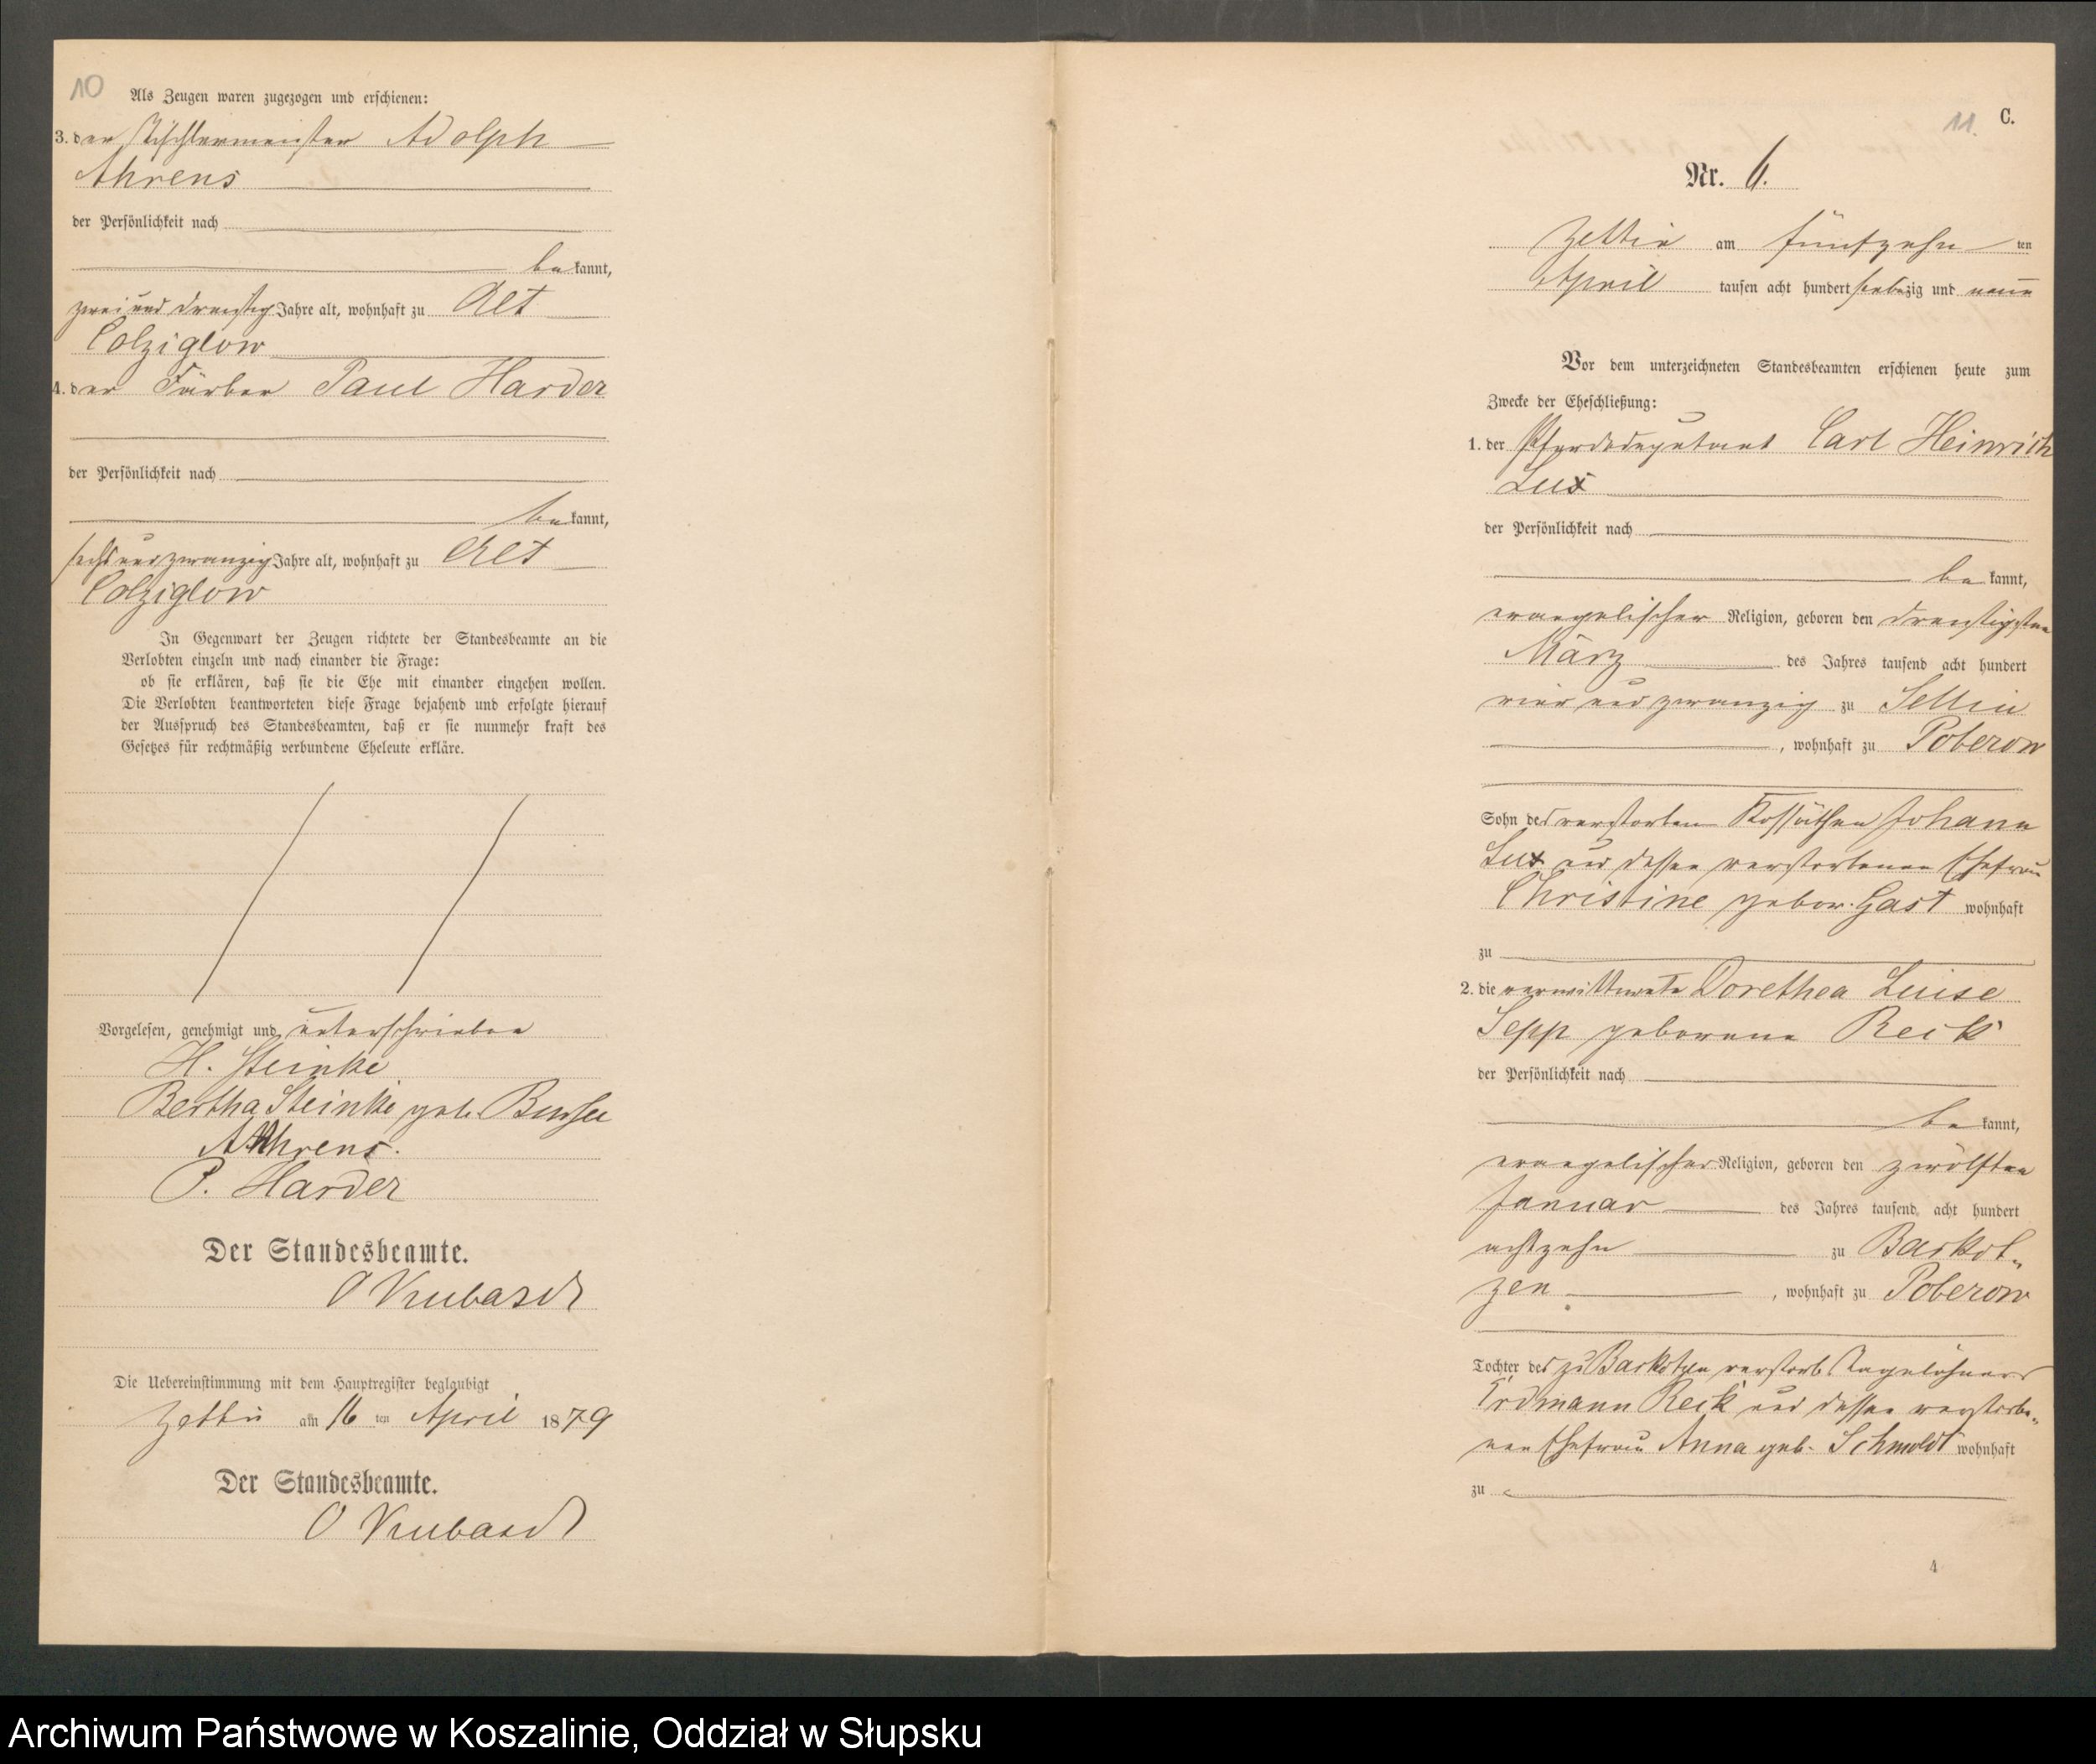 10
Als Zeugen waren zugezogen und erschienen:
3. der Tischlermeister Adolph
Ahrens
der Persönlichkeit nach
bekannt,
zwei und dreißig Jahre alt, wohnhaft zu Alt
Colziglow
4. der Färber Paul Harder
der Persönlichkeit nach
bekannt,
sechs und zwanzig Jahre alt, wohnhaft zu Alt
Colziglow
In Gegenwart der Zeugen richtete der Standesbeamte an die
Verlobten einzeln und nach einander die Frage:
ob sie erklären, daß sie die Ehe mit einander eingehen wollen.
Die Verlobten beantworteten diese Frage bejahend und erfolgte hierauf
der Ausspruch des Standesbeamten, daß er sie nunmehr kraft des
Gesetzes für rechtmäßig verbundene Eheleute erkläre.
Vorgelesen, genehmigt und unterschrieben
H. Steinke
Bertha Steinke geb.
A Ahrens.
P. Harder
Der Standesbeamte.
Die Uebereinstimmung mit dem Hauptregister beglaubigt
Zettin am 16 ten April 1879
Der Standesbeamte.
11. C.
Nr. 6.
Zettin am fünfzehn ten
April tausen acht hundert siebzig und neun
Vor dem unterzeichneten Standesbeamten erschienen heute zum
Zwecke der Eheschließung:
1. der Pferdedeputant Carl Heinrich
Lux
der Persönlichkeit nach
bekannt,
evangelischer Religion, geboren den dreißigsten
März des Jahres tausend acht hundert
vier und zwanzig zu Sellin
, wohnhaft zu Poberow
Sohn des verstorben Kossäthen Johann
Lux und dessen verstorbenen Ehefrau
Christine gebor. Gast wohnhaft
zu
2. die verwittwete Dorethea Luise
Sepp geborene Reck
der Persönlichkeit nach
bekannt,
evangelischer Religion, geboren den zwölften
Januar des Jahres tausend acht hundert
achtzehn zu Barkot„
zen , wohnhaft zu Poberow
Tochter des zu Barkotzen verstorb. Tagelöhners
Erdmann Reck und dessen verstorbe„
nen Ehefrau Anna geb. Schmoldt wohnhaft
zu
4
Archiwum Państwowe w Koszalinie, Oddział w Słupsku